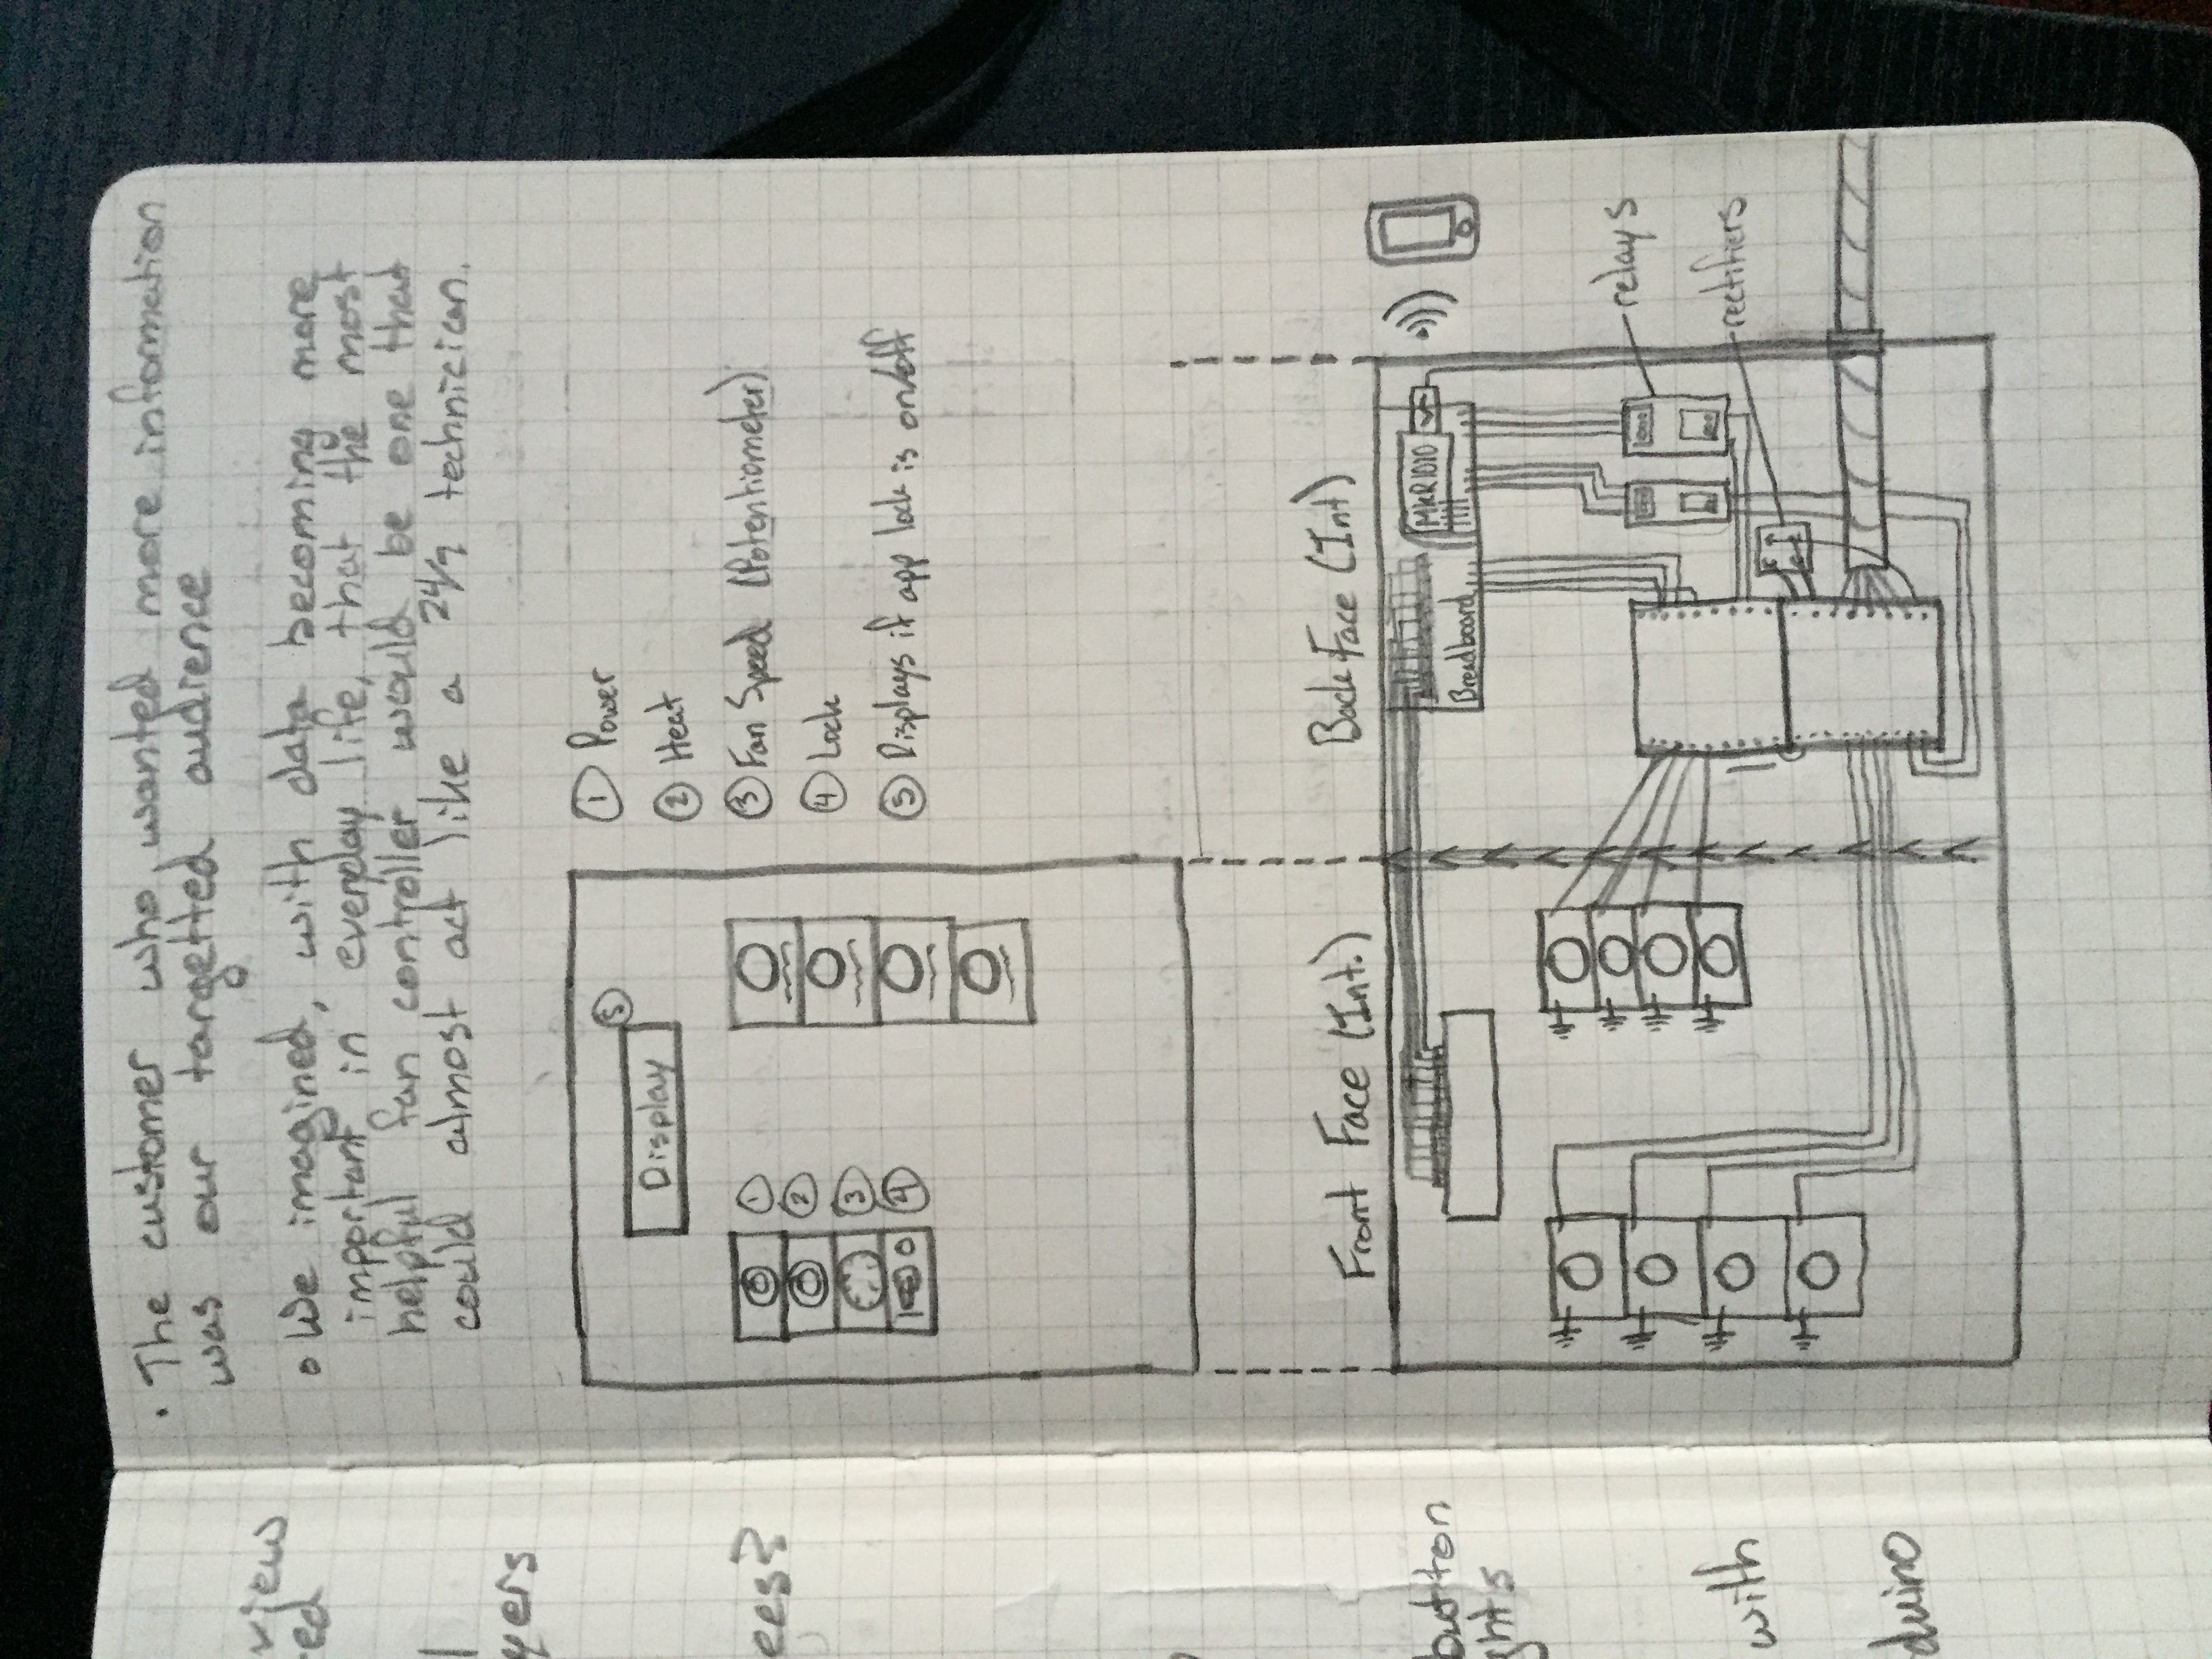 view
ed
yers
ees?
button
ghts
with
duino
· The customer who wanted more information
was our targetted audience
o We imagined, with data becoming more
important in everyday life, that the most
helpful fan controller would be one that
could almost act like a 24/7 technician.
5
Display
1
2
3
4
1 Power
2 Heat
3 Fan Speed (Potentiometer)
4 Lock
5 Displays if app lock is on/off
Front Face (Int.)
Back Face (Int)
MKR1010
Breadboard
relays
rectifiers